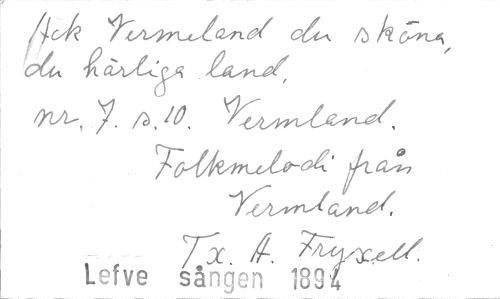 Ack Vermeland du sköna,
du härliga land,
nr. 7. s. 10. Vermland.
Folkmelodi från
Vermland.
Tx. A. Fryxell.
Lefve sången 1894